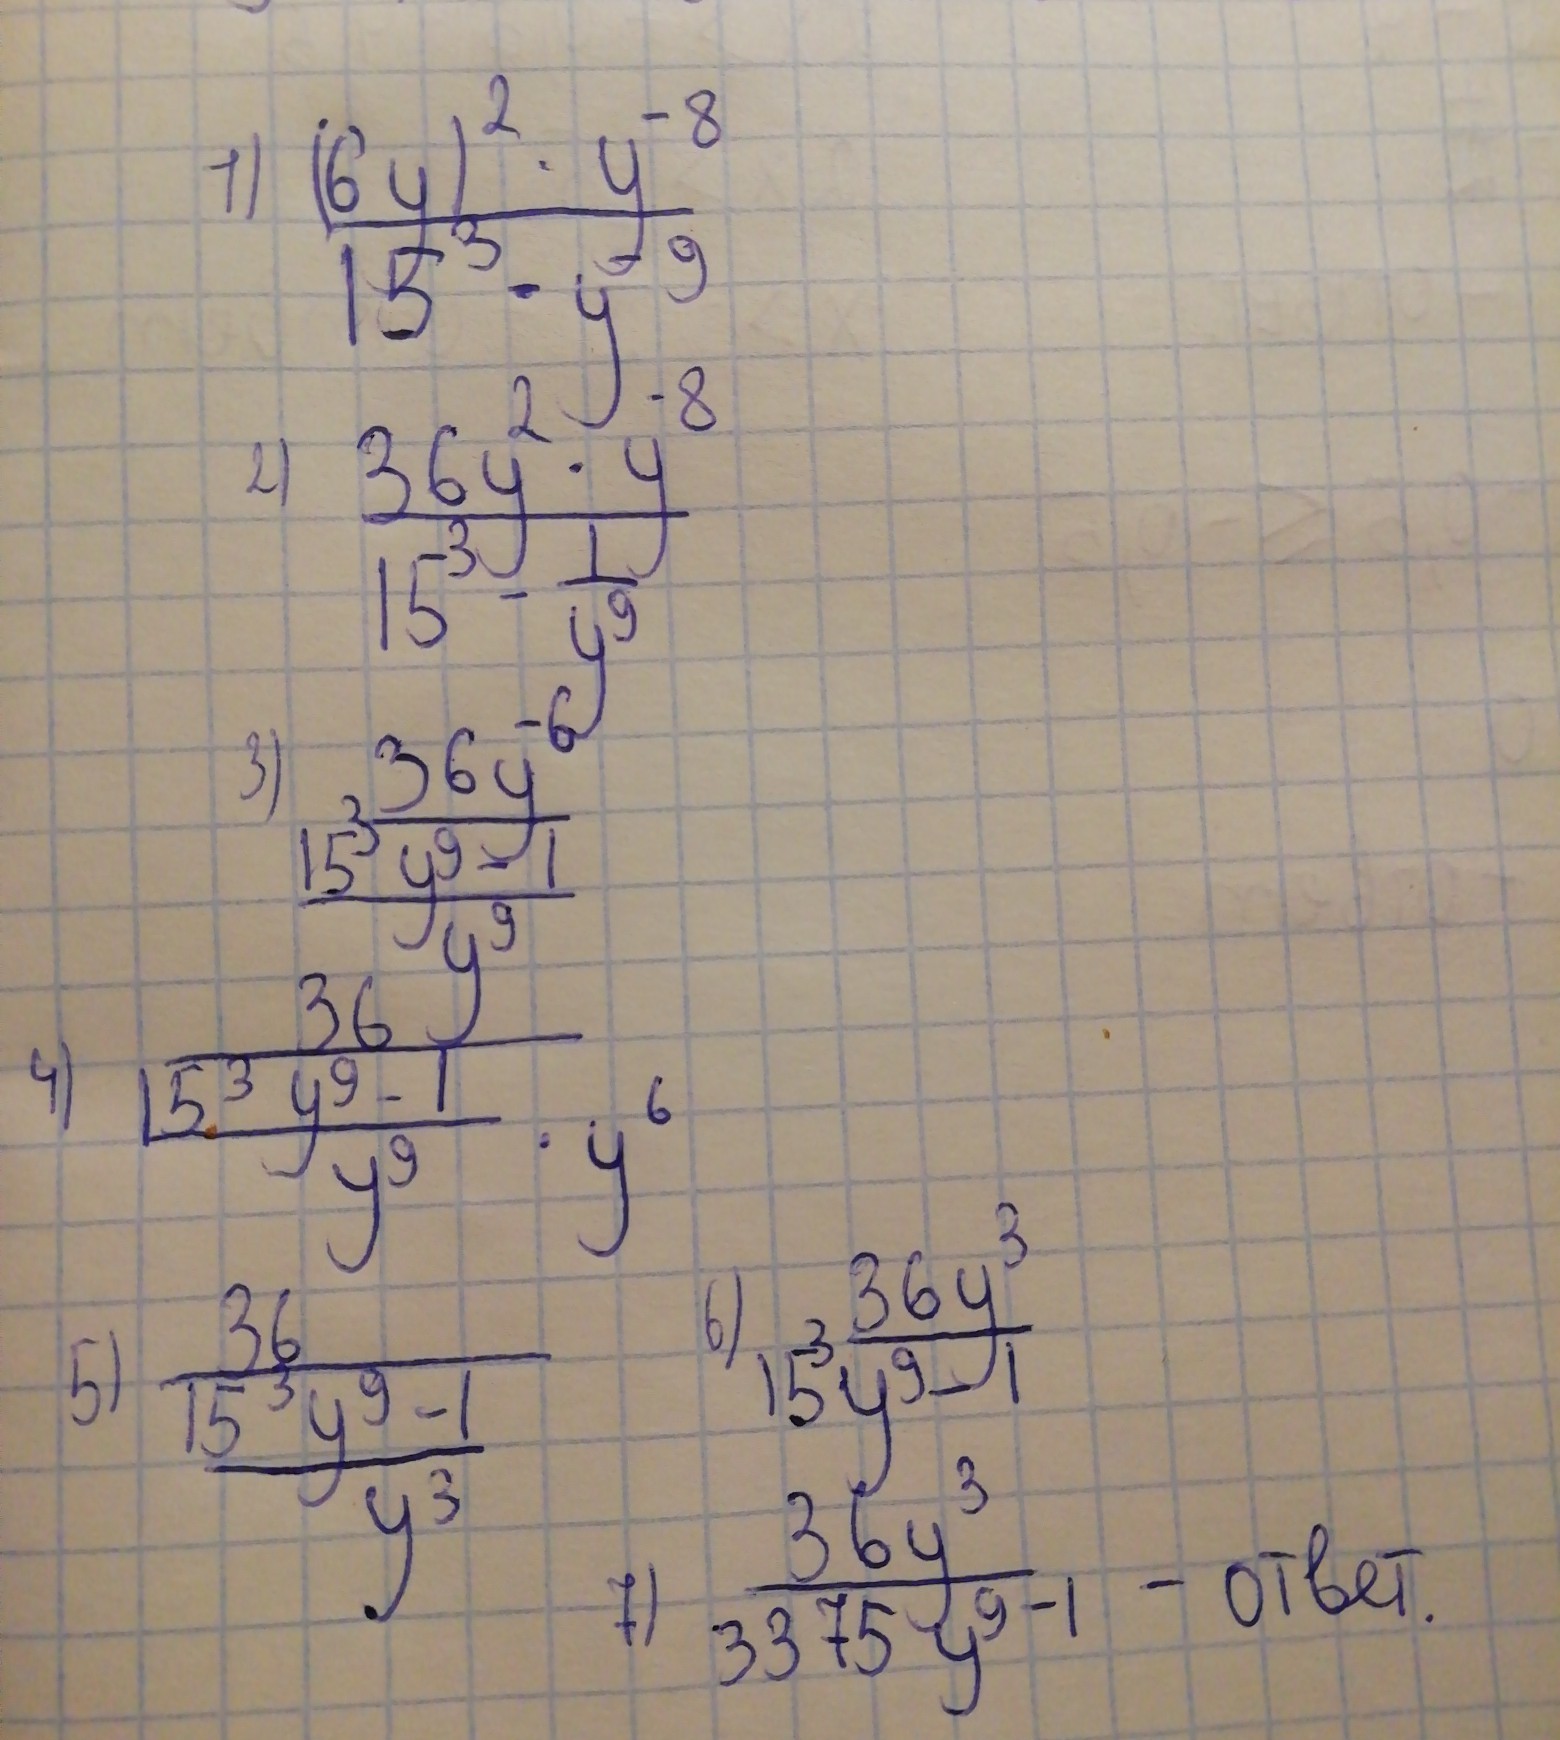 1) (6y)² · y⁻⁸
15³ - y⁻⁹
2) 36y² · y⁻⁸
15³ - 1
y⁹
3) 36y⁻⁶
15³ y⁹ - 1
y⁹
4) 36
15³ y⁹ - 1
y⁹ · y⁶
5) 36
15³ y⁹ - 1
y³
6) 36y³
15³ y⁹ - 1
7) 36y³
3375 y⁹ - 1 - ответ.